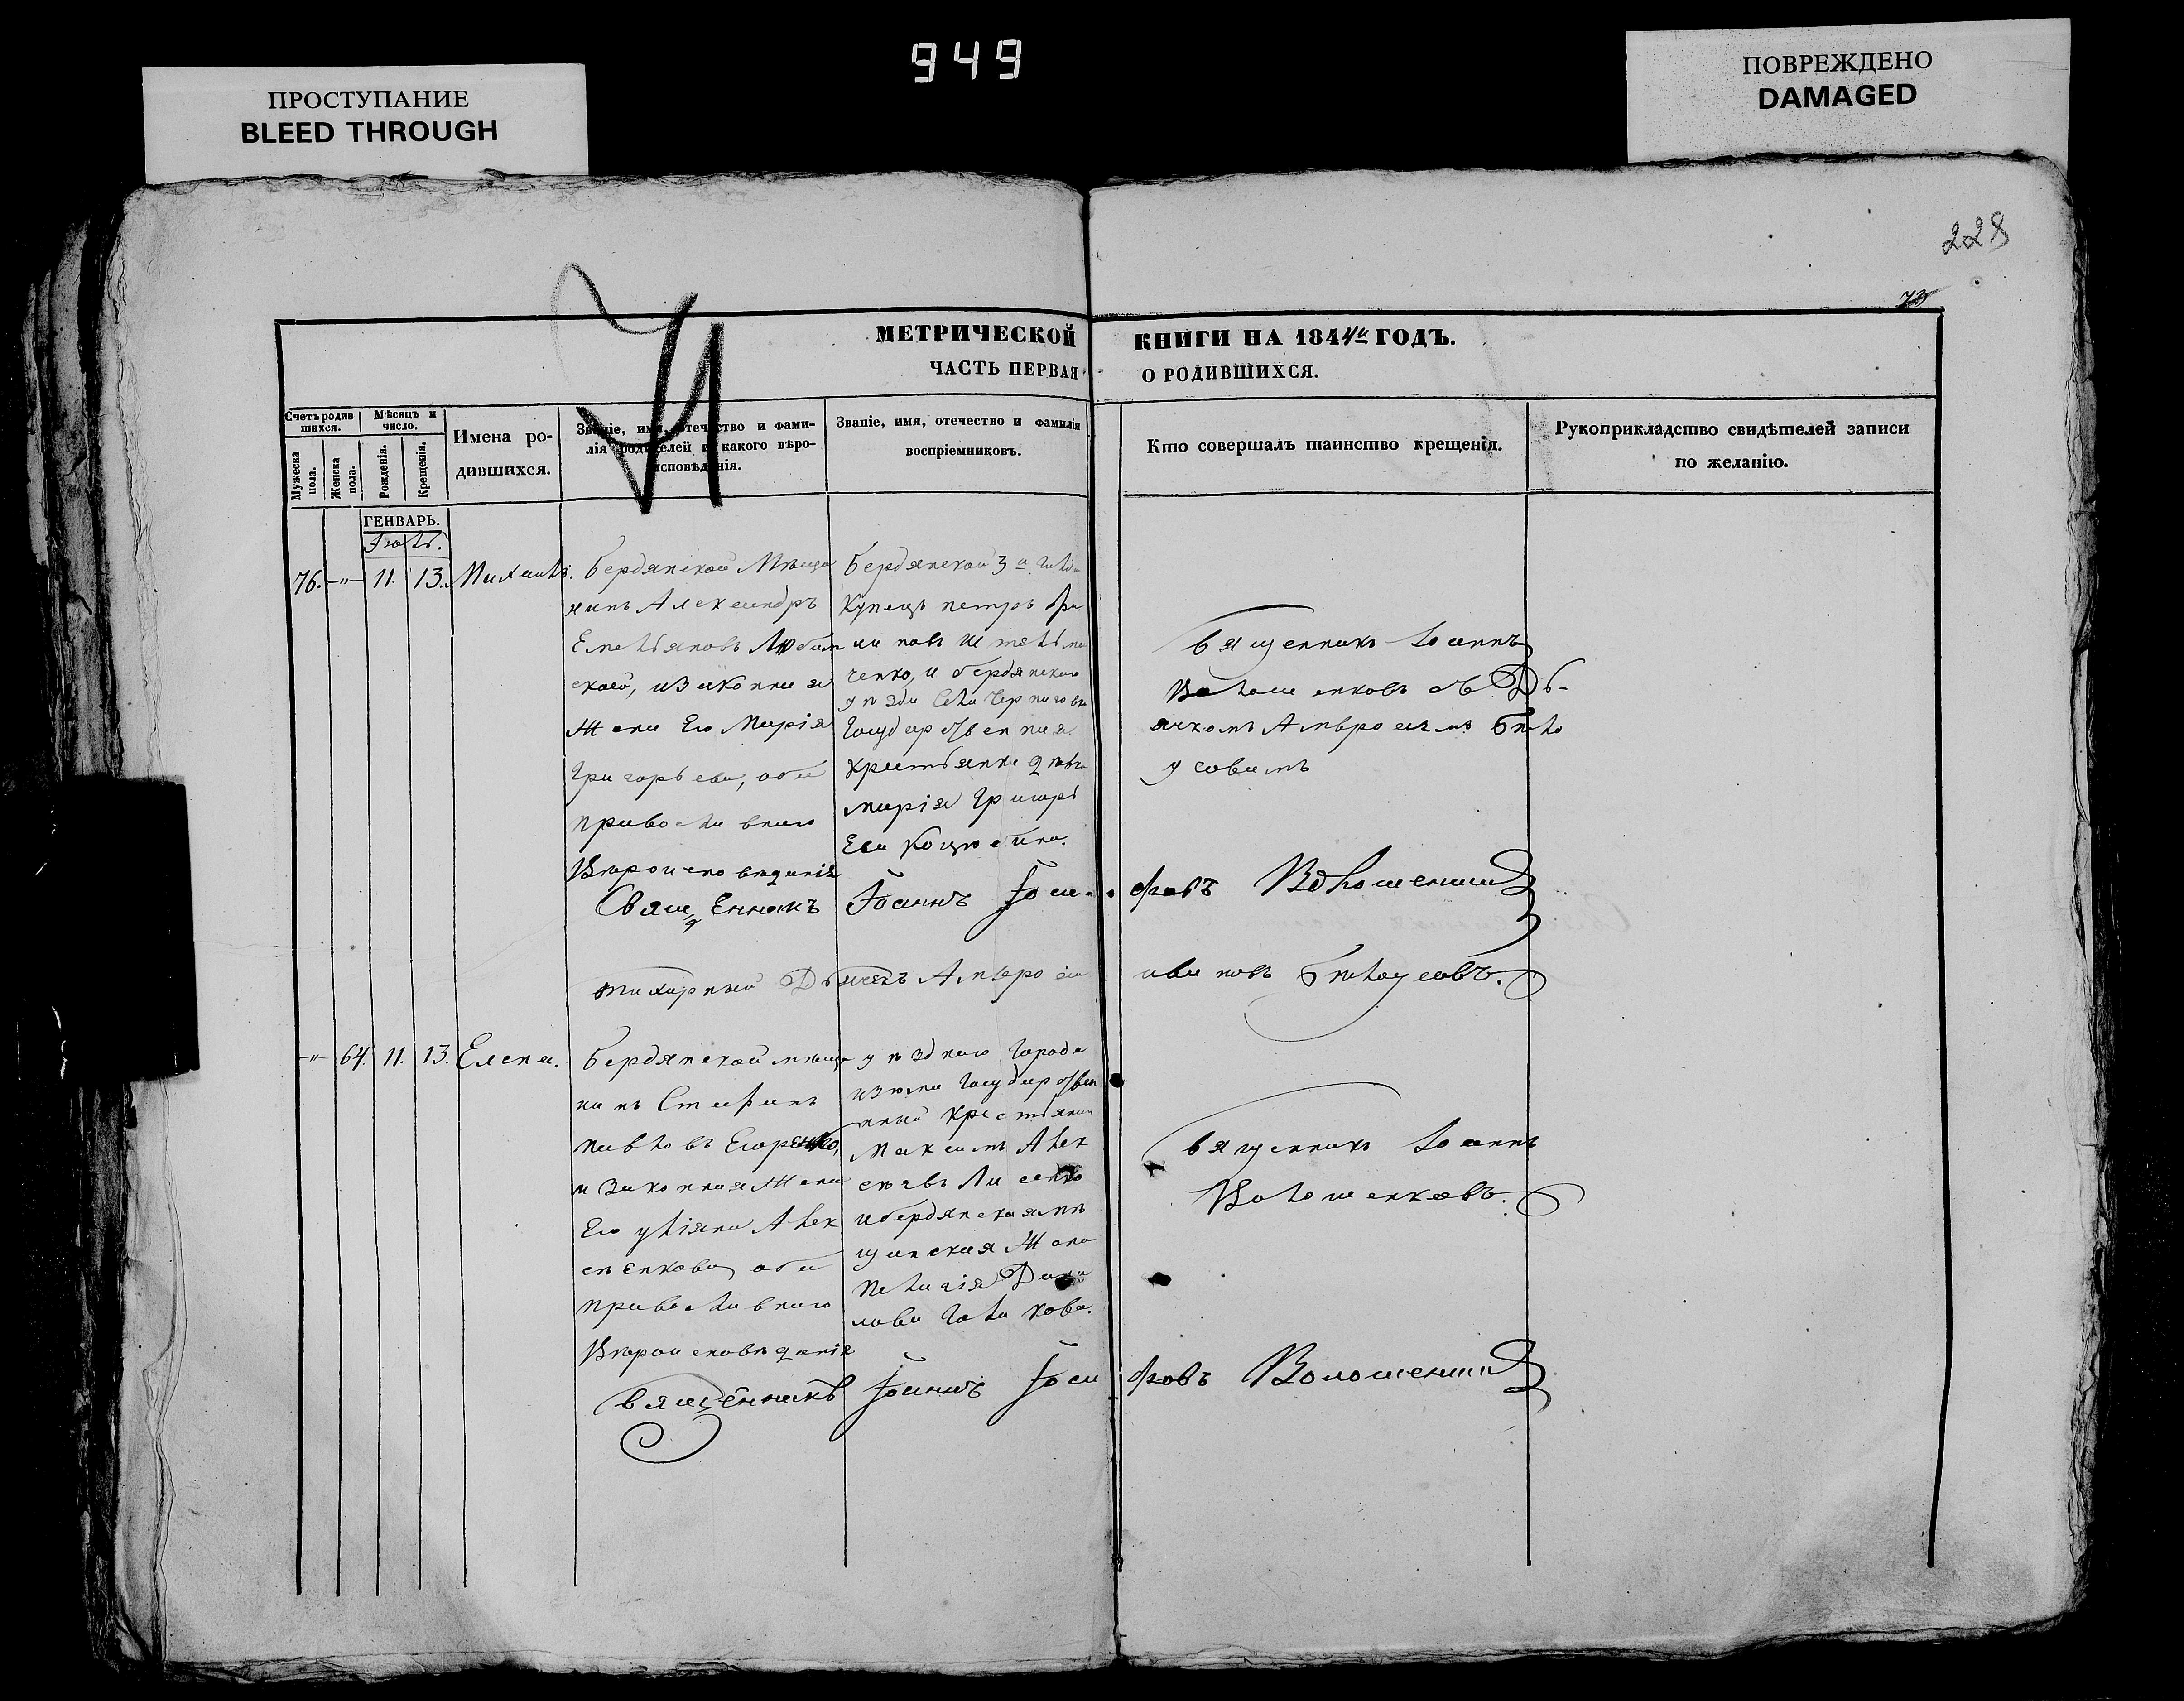 949
ПРОСТУПАНИЕ
BLEED THROUGH
ПОВРЕЖДЕНО
DAMAGED
228
73
МЕТРИЧЕСКОЙ КНИГИ НА 1844й ГОДЪ.
ЧАСТЬ ПЕРВАЯ О РОДИВШИХСЯ.
Счетъ родив
шихся.
Мужеска
пола.
Женска
пола.
Мѣсяцъ и
число.
Рожденія.
Крещенія.
Имена ро-
дившихся.
Званіе, имя, отечество и фами-
лія родителей и какого вѣро-
исповѣданія.
Званіе, имя, отечество и фамилія
воспріемниковъ.
Кто совершалъ таинство крещенія.
Рукоприкладство свидѣтелей записи
по желанію.
ГЕНВАРЬ.
76. -"- 11. 13. Михаилъ.
Бердянской Мѣща
нинъ Александръ
Емельяновъ
и законная
Жена Его Марія
Григорьева, оба
православнаго
Вѣроисповѣданія
Бердянской 3й
Купецъ Петръ
и бердянскаго
уѣзда Села Черниговки
Государственная
крестьянка
Марія Григорь
Ева
Священникъ Іоаннъ
Волошенковъ съ Дь-
ячкомъ Амвросіемъ Бѣло
усовымъ
Священникъ Іоаннъ Іоси фовъ Волошенковъ
Дьячекъ Амвросій ивановъ Бѣлоусовъ.
-"- 64. 11. 13. Елена.
Бердянской мѣща
нинъ Стефанъ
Павловъ Егоренко,
и Законная Жена
Его Уліяна Алек
сѣенкова, оба
православнаго
Вѣроисповѣданія
уѣзднаго Города
изюма Государствен
ный крестьянин
Максимъ Алек
сѣевъ Лисенко
и бердянская мѣ
щанская Жена
Пелагія Дани
лова Голикова.
Священникъ Іоаннъ
Волошенковъ.
Священникъ Іоаннъ Іоси фовъ Волошенковъ